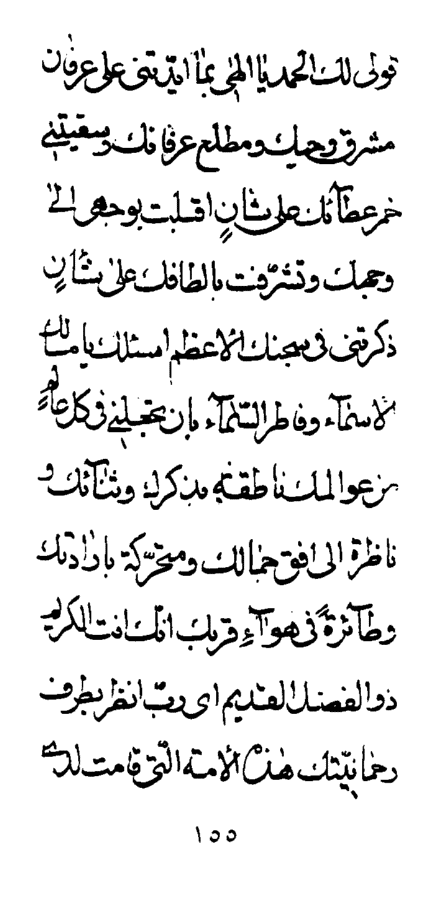 قولی لک الحمد یا الهی بما ایّدتنی علی عرفان
مشرق وحیک و مطلع عرفانک و سقیتنی
خمر عطآئک علی شانٍ اقبلت بوجهی الی
وجهک و تشرّفت بالطافک علی شانٍ
ذکرتنی فی سجنک الاعظم اسئلک یا مالک
الاسمآء و فاطر السّمآء بان تجعلنی فی کل عالمٍ
من عوالمک ناطقة بذکرک و ثنآئک و
ناظرة الی افق جمالک و متحرّکة بارادتک
و طآئرةً فی هوآءِ قربک انّک انت الکریم
ذو الفضل القدیم ای ربّ انظر بطرف
رحمانیّتک هذه الامة الّتی قامت لدی
۱۵۵